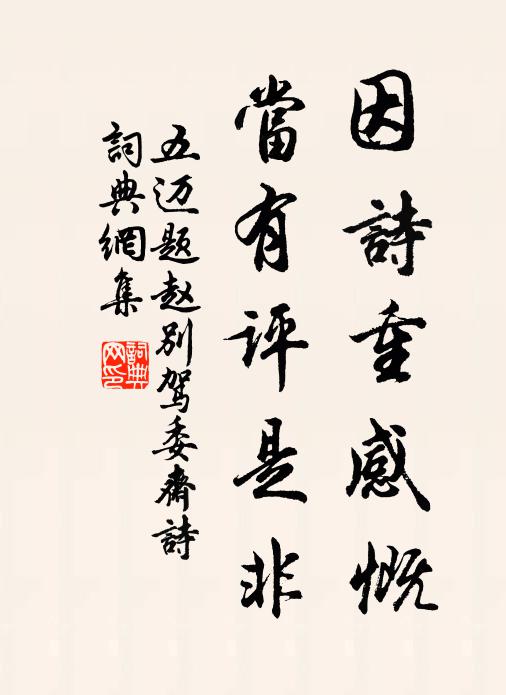 因詩重感慨
當有評是非
五迈题赵别驾委齋詩
詞典網集
詞典網印